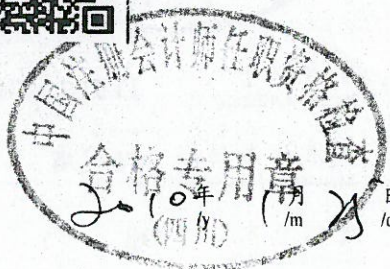 中国注册会计师任职资格检查
合格专用章
2010年 月 日
/y /m /d
(四川)